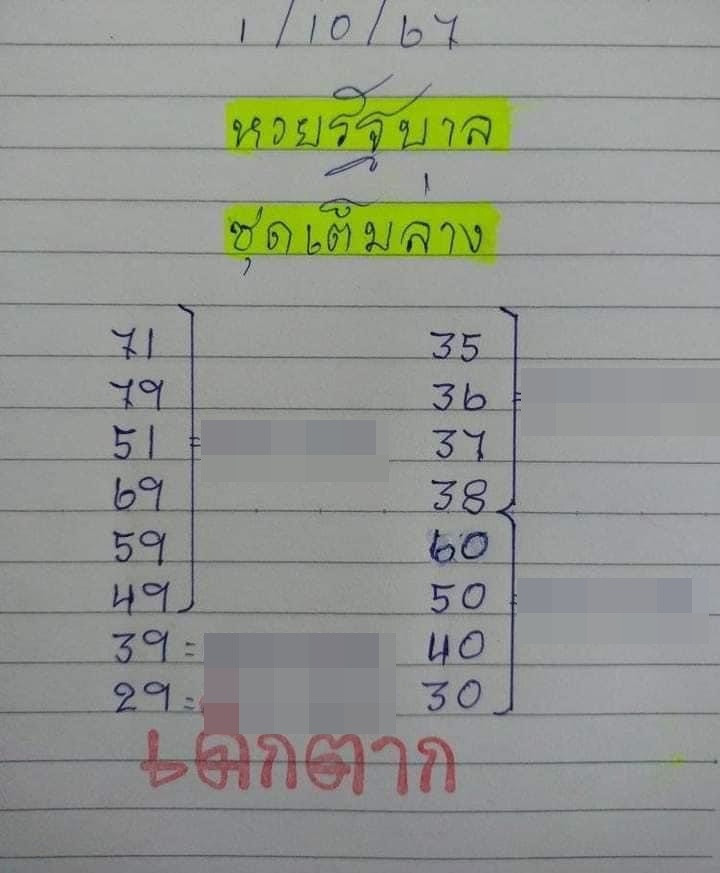 1/10/67
หวยรัฐบาล
ชุดเต็มล่าง
71 35
79 36
51 37
69 38
59 60
49 50
39 = 40
29 = 30
เด็กตาก